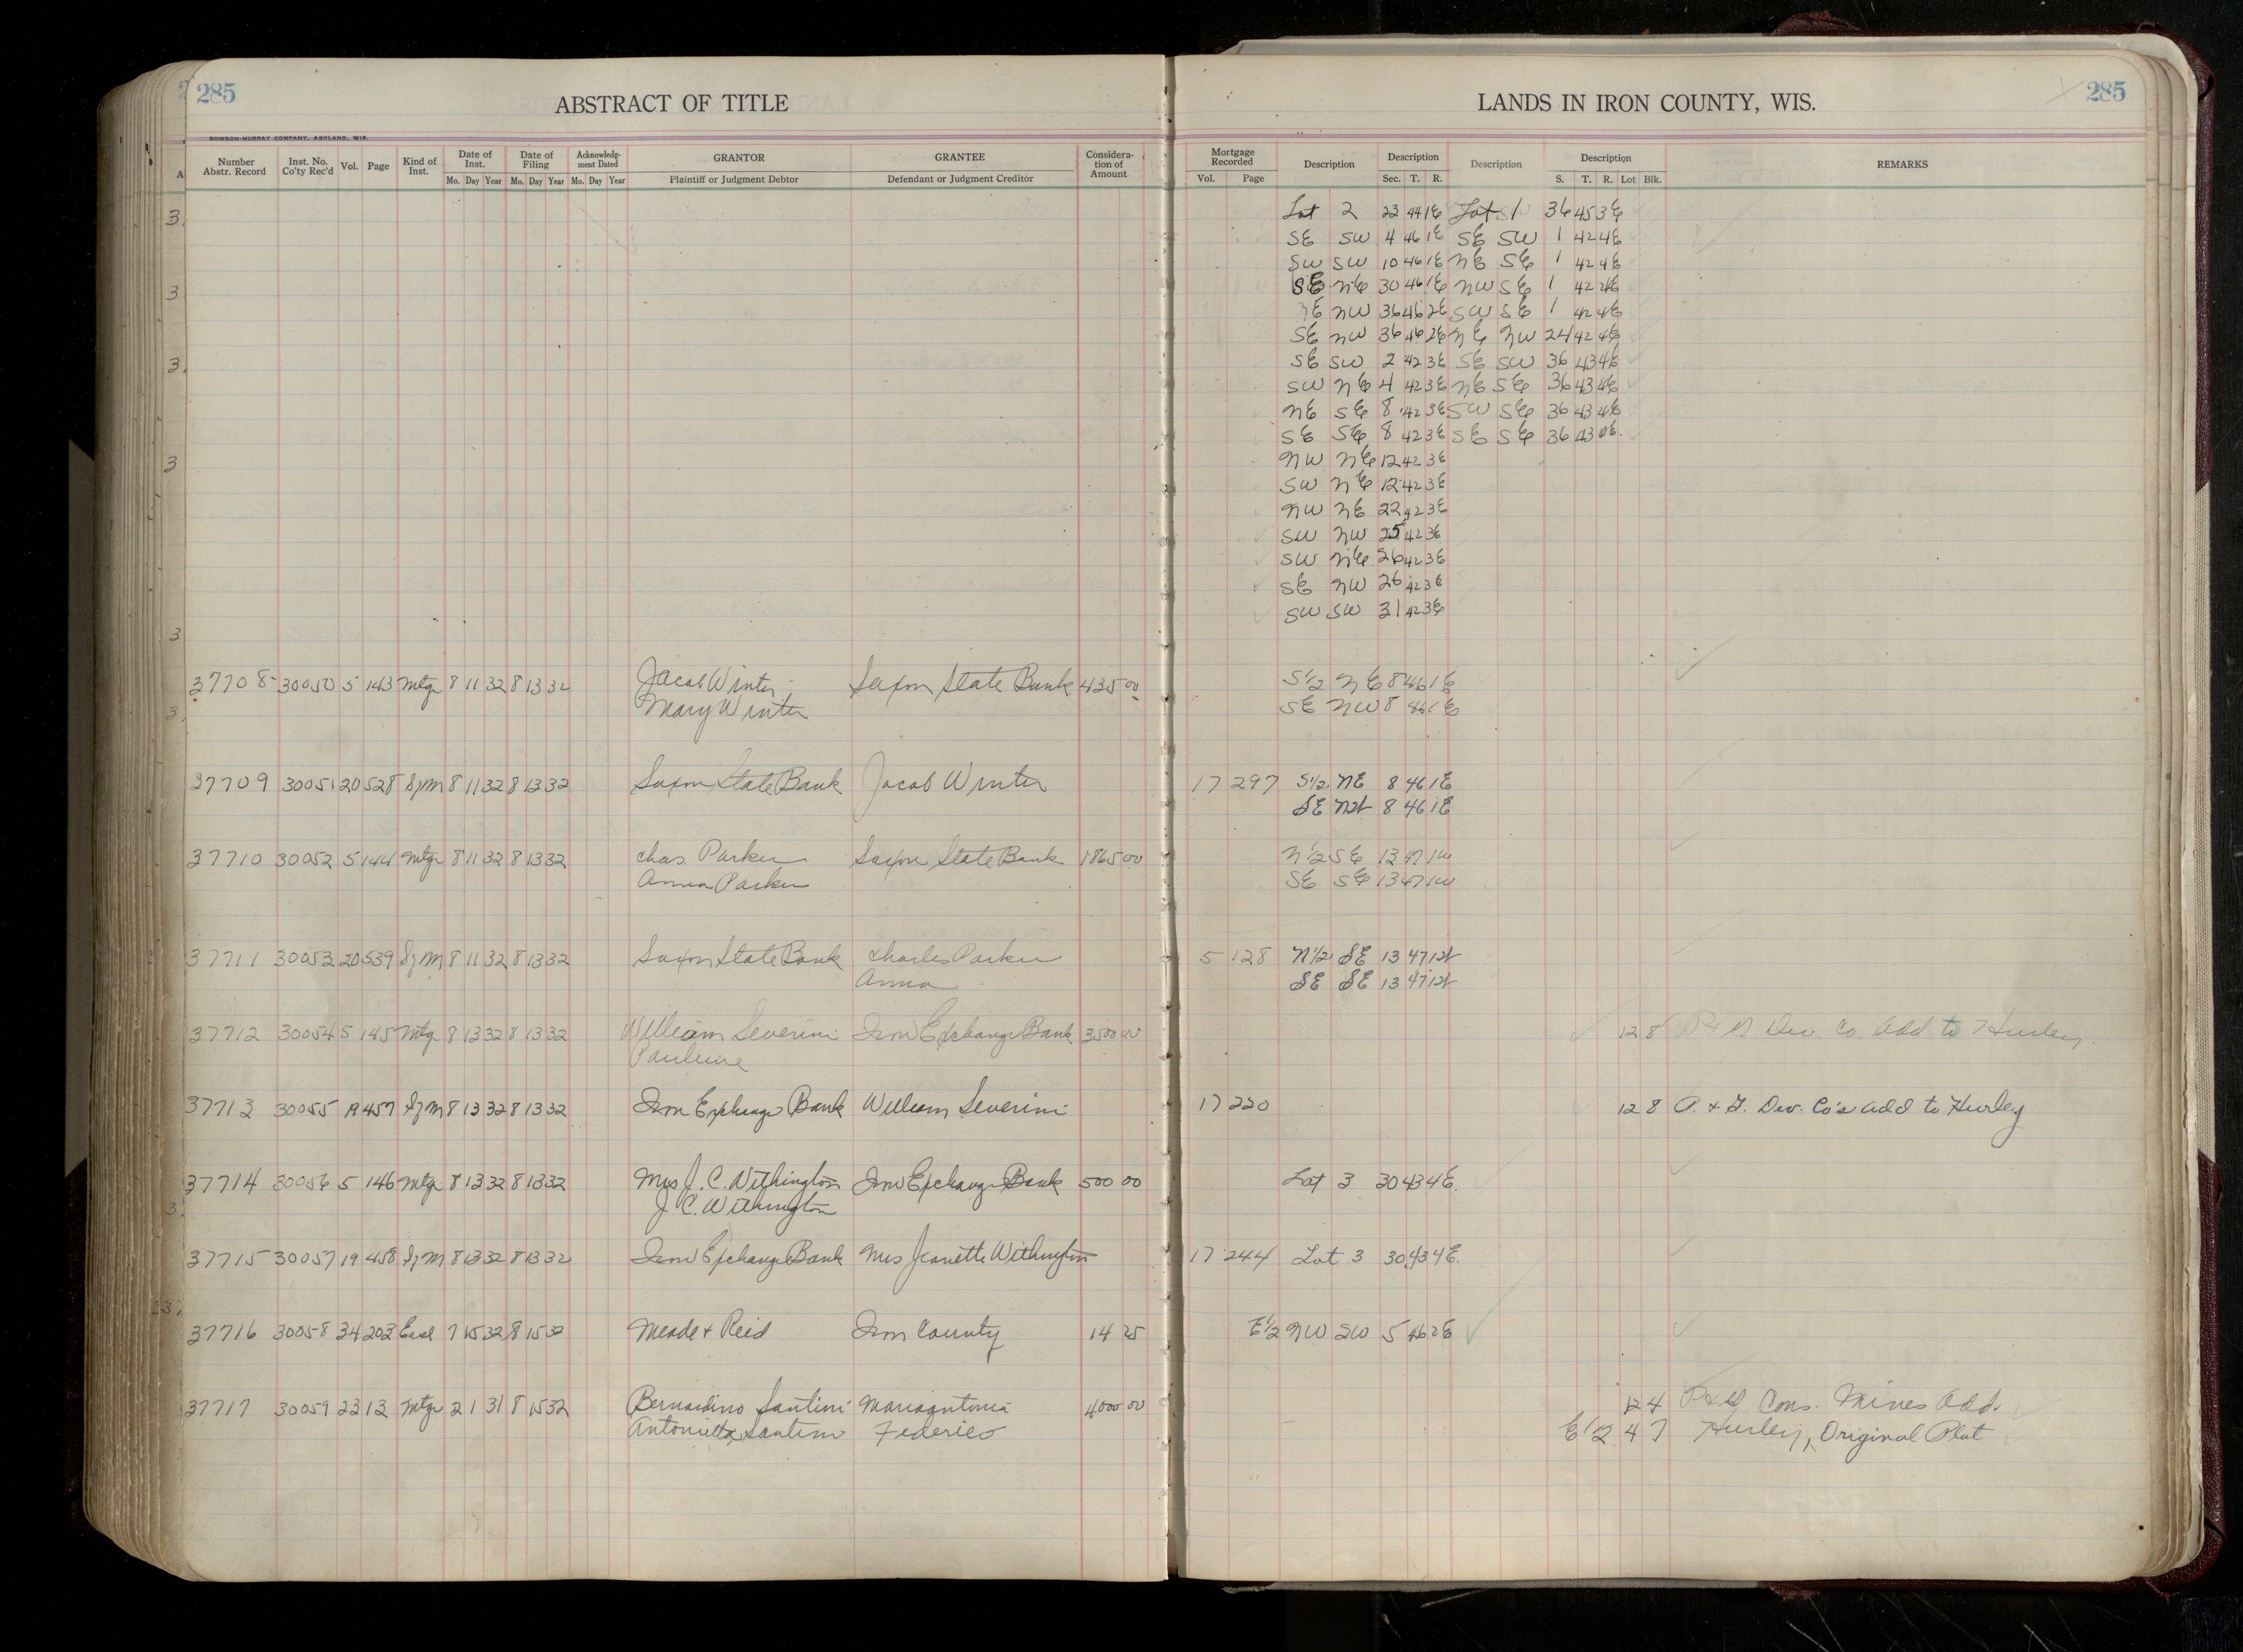 285
ABSTRACT OF TITLE
LANDS IN IRON COUNTY, WIS.
285
BOWRON-MURRAY COMPANY, ASHLAND, WIS.
Number Abstr. Record
Inst. No. Co'ty Rec'd
Vol.
Page
Kind of Inst.
Date of Inst.
Date of Filing
Acknowledgment Dated
GRANTOR
GRANTEE
Consideration of Amount
Mortgage Recorded
Description
Description
Description
Description
REMARKS
Mo. Day Year Mo. Day Year Mo. Day Year
Plaintiff or Judgment Debtor
Defendant or Judgment Creditor
Vol. Page
Sec. T. R.
S. T. R. Lot Blk.
Lot 2 22 44 1E Lot 1 36 45 3E
SE SW 4 46 1E SE SW 1 42 4E
SW SW 10 46 1E NE SE 1 42 4E
SE NE 30 46 1E NW SE 1 42 4E
NE NW 36 46 2E SW SE 1 42 4E
SE NW 36 46 2E NE NW 24 42 4E
SE SW 2 42 3E SE SW 36 43 4E
SW NE 4 42 3E NE SE 36 43 4E
NE SE 8 42 3E SW SE 36 43 4E
SE SE 8 42 3E SE SE 36 43 4E.
NW NE 12 42 3E
SW NE 12 42 3E
NW NE 22 42 3E
SW NW 25 42 3E
SW NE 26 42 3E
SE NW 26 42 3E
SW SW 31 42 3E
37708 30050 5 143 Mtge 8 11 32 8 13 32 Jacob Winter Saxon State Bank 435 00 S1/2 NE 8 46 1E
Mary Winter SE NW 8 46 1E
37709 30051 20 528 Sf M 8 11 32 8 13 32 Saxon State Bank Jacob Winter 17 297 S1/2 NE 8 46 1E
SE NW 8 46 1E
37710 30052 5 144 Mtge 8 11 32 8 13 32 Chas. Parker Saxon State Bank 1865 00 N1/2 SE 13 47 1W
Anna Parker SE SE 13 47 1W
37711 30053 20 539 Sf M 8 11 32 8 13 32 Saxon State Bank Charles Parker 5 128 N1/2 SE 13 47 1W
Anna SE SE 13 47 1W
37712 30054 5 145 Mtg 8 13 32 8 13 32 William Severini Iron Exchange Bank 3500 00 12 8 Dev. Co. Add to Hurley
Pauline
37713 30055 19 457 Sf M 8 13 32 8 13 32 Iron Exchange Bank William Severini 17 220 12 8 Dev. Co's Add to Hurley
37714 30056 5 146 Mtge 8 13 32 8 13 32 Mrs J. C. Withington Iron Exchange Bank 500 00 Lot 3 30 43 4E.
J. C. Withington
37715 30057 19 458 Sf M 8 13 32 8 13 32 Iron Exchange Bank Mrs Jeanette Withington 17 244 Lot 3 30 43 4E.
37716 30058 34 203 Ease 7 15 32 8 15 32 Meade & Reid Iron County 14 25 E1/2 NW SW 5 46 2E
37717 30059 23 13 Mtge 2 1 31 8 15 32 Bernardino Santini Mariaantonia 4000 00 12 4 Cons. Mines Add.
Antonietta Santini Federico E1/2 4 7 Hurley, Original Plat